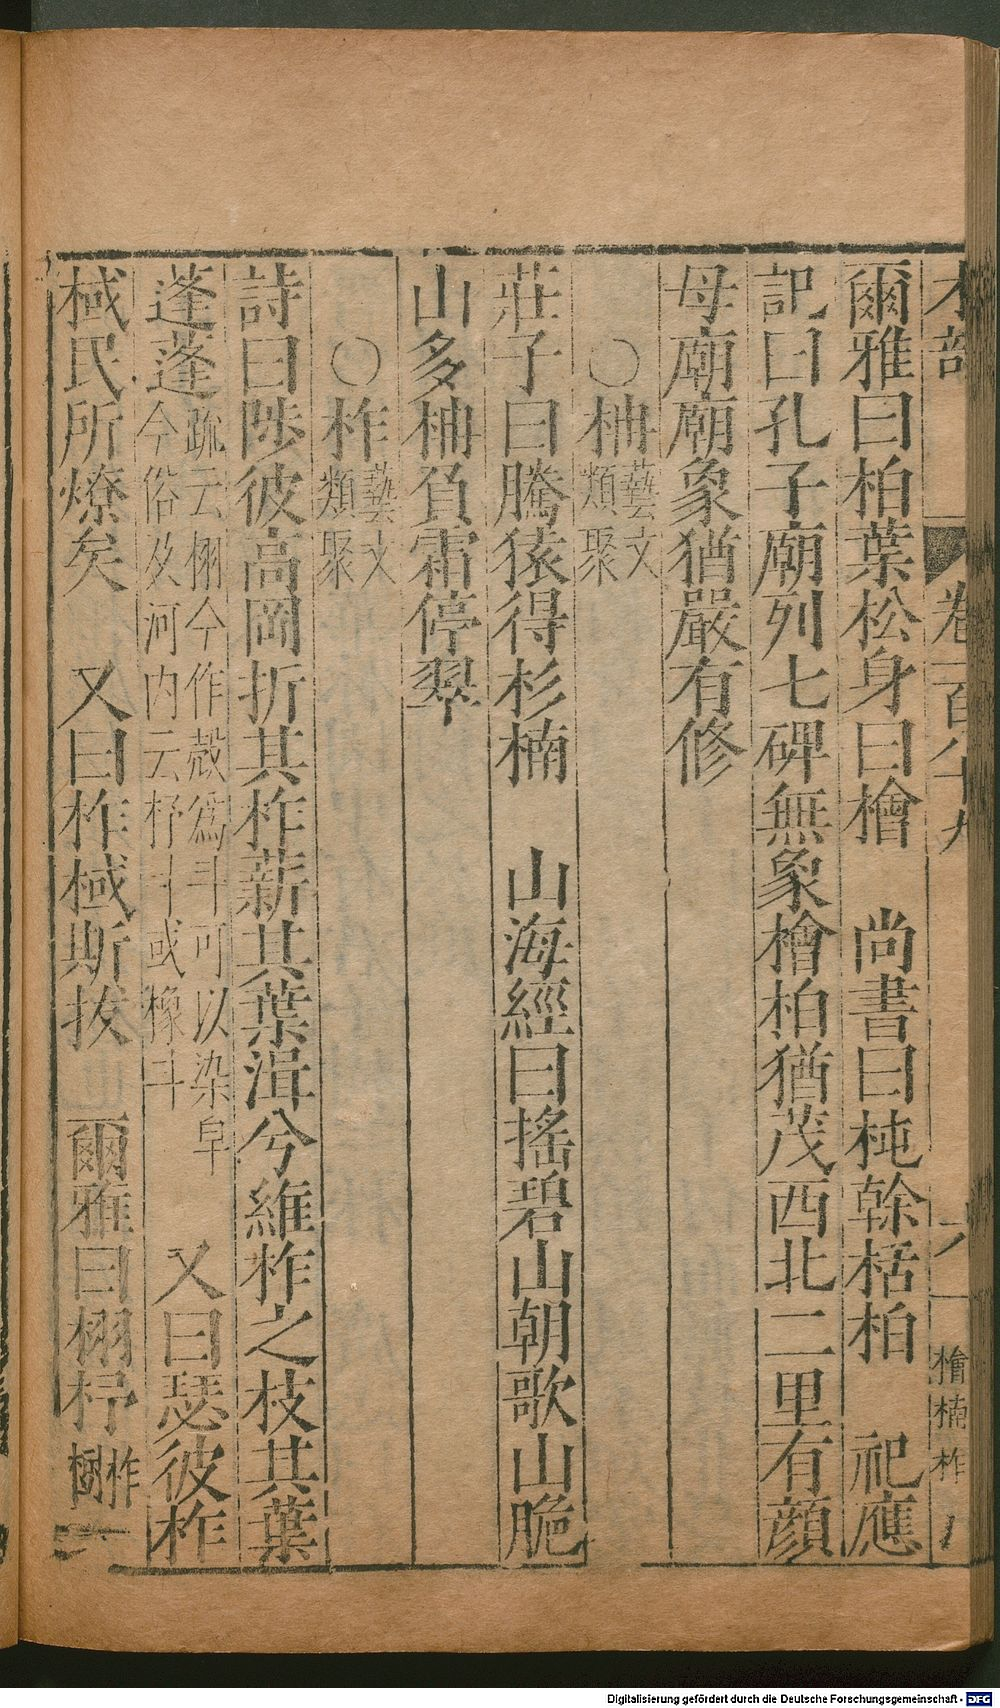 木部
卷一百八十九
檜楠柞
爾雅曰柏葉松身曰檜　尚書曰杶榦栝柏　祀應
記曰孔子廟列七碑無象檜柏猶茂西北二里有顔
母廟廟象猶嚴有修
○柟藝文類聚
莊子曰騰猿得杉楠　山海經曰搖碧山朝歌山脆
山多柟負霜停翠
○柞藝文類聚
詩曰陟彼高岡折其柞薪其葉湑兮維柞之枝其葉
蓬蓬疏云栩今作殼爲斗可以染皁今俗及河内云杼斗或橡斗　又曰瑟彼柞
棫民所燎矣　又曰柞棫斯拔　爾雅曰栩杼柞樹
Digitalisierung gefördert durch die Deutsche Forschungsgemeinschaft - DFG